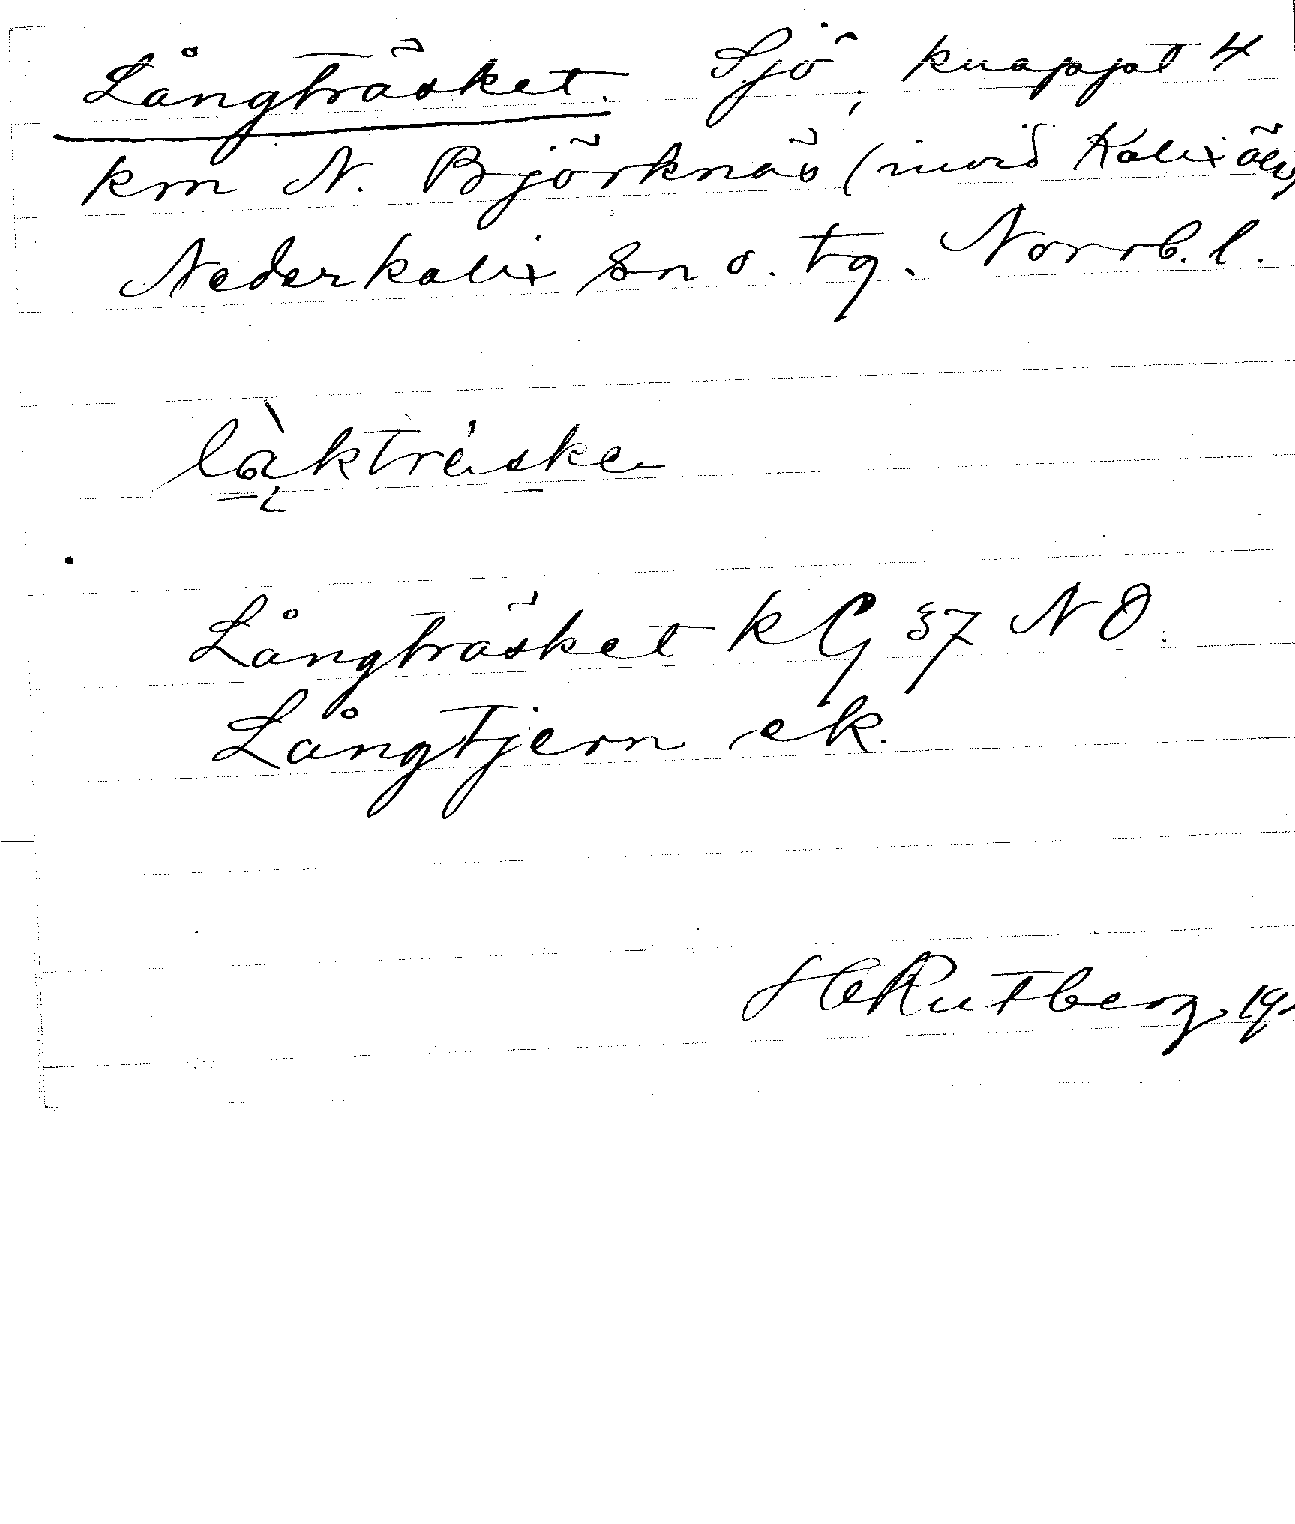 Långträsket. Sjö, knappt 4
km N. Björknäs (invid Kalixälv)
Nederkalix sn o. tg. Norrb. l.
làkträske
Långträsket kG 37 NO.
Långtjern ek.
H Rutberg 19